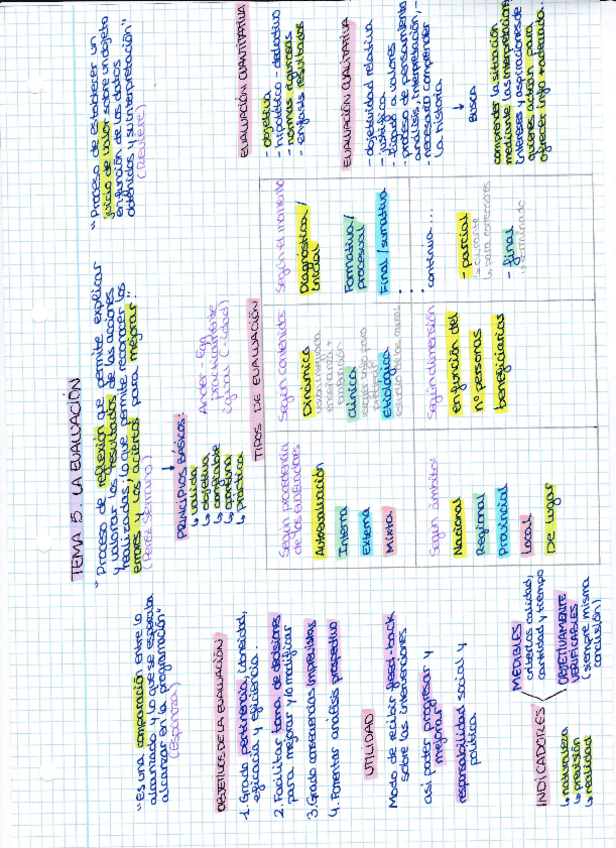 TEMA 5. LA EVALUACIÓN
"Es una comparación entre lo
alcanzado y lo que se esperaba
alcanzar en la programación"
(Espinoza)
"Proceso de reflexión que permite explicar
y valorar los resultados de las acciones
realizadas, lo que permite reconocer los
errores y los aciertos para mejorar".
(Pérez Serrano)
"Proceso de establecer un
juicio de valor sobre un objeto
en función de los datos
obtenidos y su interpretación"
OBJETIVOS DE LA EVALUACIÓN
1. Grado pertinencia, idoneidad,
eficacia y eficiencia.
2. Facilitar toma de decisiones
para mejorar y/o modificar
3. Grado consecuencias imprevistas
4. Fomentar análisis prospectivo
UTILIDAD
Modo de recibir feed-back
sobre las intervenciones
así poder progresar y
mejorar
responsabilidad social y
política.
INDICADORES
MEDIBLES
criterios calidad,
cantidad y tiempo
OBJETIVAMENTE
VERIFICABLES
(siempre misma
conclusión)
naturaleza
previsión
realidad
PRINCIPIOS BÁSICOS:
válida
objetiva
confiable
oportuna
práctica
Ander-Egg
prácticamente
igual (-idad)
TIPOS DE EVALUACIÓN
Según procedencia
de los evaluadores
Autoevaluación
Interna
Externa
Mixta
Según contenidos
Dinámica
Clínica
Etiológica
Según el momento
Diagnóstica /
inicial
Formativa /
procesual
Final / sumativa
Según ámbitos
Nacional
Regional
Provincial
Local
De lugar
Según dimensión
en función del
nº personas
beneficiarias
continua...
- parcial
durante
para correcciones
- final
terminado
EVALUACIÓN CUANTITATIVA
- objetiva
- hipotético - deductivo
- normas rigurosas
- enfasis resultados
EVALUACIÓN CUALITATIVA
- objetividad relativa
- justifica
- ligado a valores
- proceso de pensamiento
análisis, interpretación,
- necesario comprender
la historia
BUSCA
comprender la situación
mediante las interpretaciones
intereses y aspiraciones de
quienes actúan para
ofrecer info + adecuada.